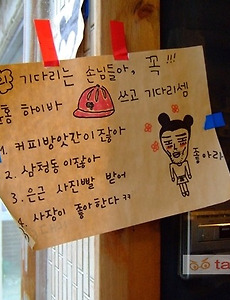 기다리는 손님들아, 꼭 !!!
홈 하이바 쓰고 기다리셈
1. 커피방앗간이 잖아
2. 삼청동 이잖아
3. 은근 사진빨 받어
4. 사장이 좋아한다 ㅋㅋ
좋아라
ta